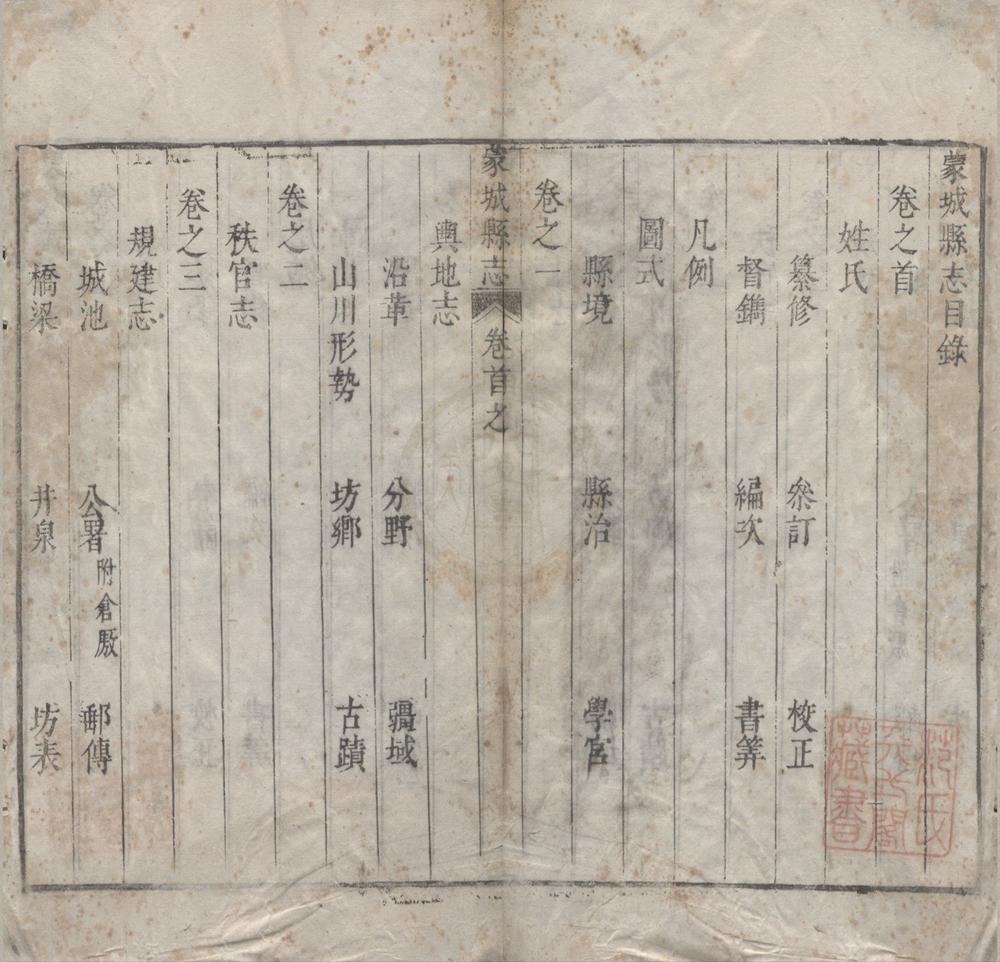 蒙城縣志目錄
卷之首
姓氏
纂修 叅訂 校正
督鐫 編次 書筭
凡例
圖式
縣境 縣治 學宮
卷之一
蒙城縣志 卷首之
輿地志
沿革 分野 疆域
山川形勢 坊鄉 古蹟
卷之二
秩官志
卷之三
規建志
城池 公署附倉厫 郵傳
橋梁 井泉 坊表
范氏天一閣藏書